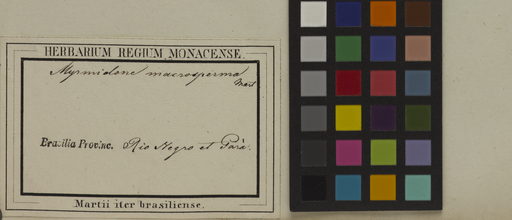 HERBARIUM REGIUM MONACENSE.
Myrmidone macrosperma
Mart
Brazilia Provinc. Rio Negro et Parà.
Martii iter brasiliense.